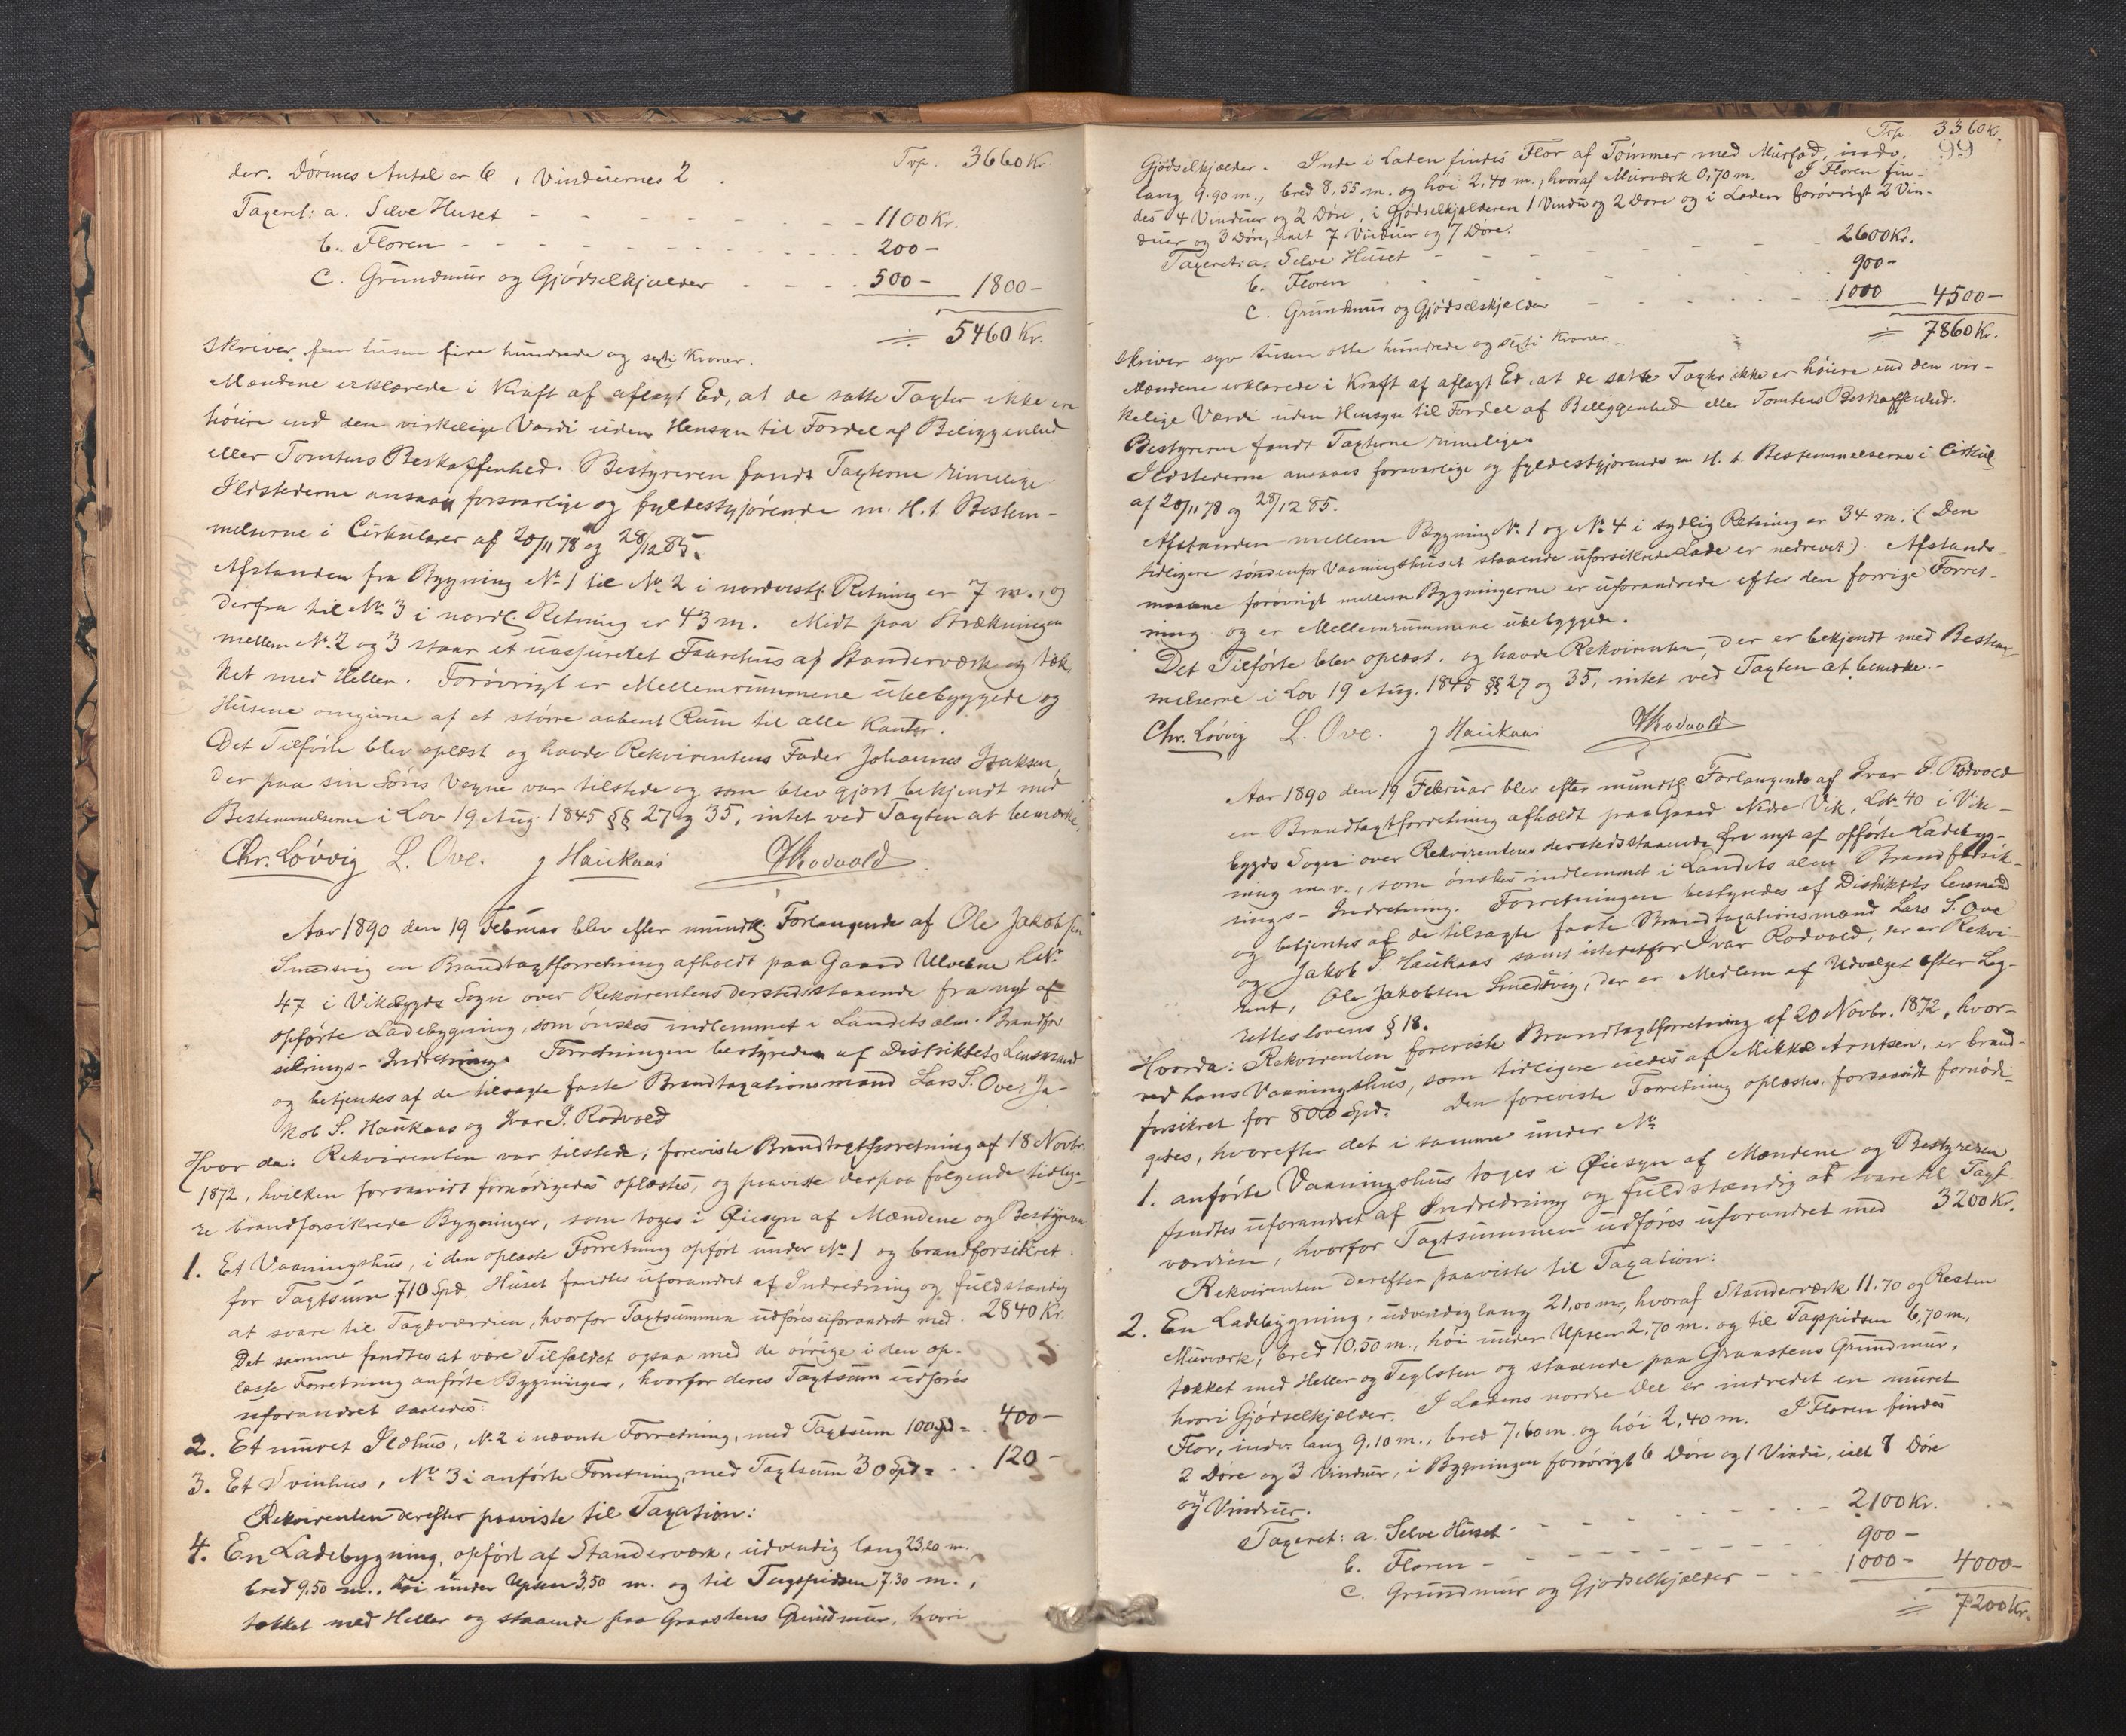 Trp. 3660 Kr.
der. Dörenes Antal er 6, Vinduernes 2.
Taxeret: a. Selve Huset - - - - 1100 Kr.
b. Floren - - - - 200 -
c. Grundmur og Gjödselkjælder - - - 500 - 1800 -
÷ 5460 Kr.
skriver fem tusen fire hundrede og sexti Kroner.
Mændene erklærede i Kraft af aflagt Ed, at de satte Taxter ikke er
höiere end den virkelige Værdi uden Hensyn til Fordel af Beliggenhed
eller Tomtens Beskaffenhed. Bestyreren fandt Taxterne rimelige
Ildstederne ansaaes forsvarlige og fyldestgjörende m. H. t. Bestem-
melserne i Cirkulærer af 20/11 78 og 28/12 85.
Afstanden fra Bygning No 1 til No 2 i nordvestl. Retning er 7 m., og
derfra til No 3 i nordl. Retning er 43 m. Midt paa Strækningen
mellem No 2 og 3 staar et uassureret Faarehus af Standerværk og tæk-
ket med Heller. Forövrigt er Mellemrummene ubebyggede og
Husene omgivne af et större aabent Rum til alle Kanter.
Det Tilförte blev oplæst og havde Rekvirentens Fader Johannes Isaksen,
der paa sin Söns Vegne var tilstede og som blev gjort bekjendt med
Bestemmelserne i Lov 19 Aug. 1845 §§ 27 og 35, intet ved Taxten at bemærke.
Chr. Lövvig L. Ove. J Haukaas Rodvold
Aar 1890 den 19 Februar blev efter mundtl. Forlangende af Ole Jakobsen
Smedsvig en Brandtaxtforretning afholdt paa Gaard Ulvebne LNo
47 i Vikebygds Sogn over Rekvirentens dersteds staaende fra nyt af
opförte Ladebygning, som önskes indlemmet i Landets alm. Brandfor
sikrings-Indretning. Forretningen bestyredes af Distriktets Lensmand
og betjentes af de tilsagte faste Brandtaxationsmænd Lars S. Ove, Ja-
kob S. Haukaas og Ivar I. Rodvold
Hvor da: Rekvirenten var tilstede, foreviste Brandtaxtforretning af 18 Novbr.
1872, hvilken forsaavidt fornödigedes oplæstes, og paaviste derpaa fölgende tidlige-
re brandforsikrede Bygninger, som toges i Öiesyn af Mændene og Bestyreren
1. Et Vaaningshus, i den oplæste Forretning opfört under No 1 og brandforsikret
for Taxtsum 710 Spd. Huset fandtes uforandret af Indredning og fuldstændig
at svare til Taxtværdien, hvorfor Taxtsummen udföres uforandret med. 2840 Kr.
Det samme fandtes at være Tilfældet ogsaa med de övrige i den op-
læste Forretning anförte Bygninger, hvorfor deres Taxtsum udföres
uforandret saaledes:
2. Et muret Ildhus, No 2 i nævnte Forretning, med Taxtsum 100 Spd = 400 -
3. Et Svinhus, No 3 i anförte Forretning, med Taxtsum 30 Spd = . . 120 -
Rekvirenten derefter paaviste til Taxation:
4. En Ladebygning, opfört af Standerværk, udvendig lang 23,20 m.
bred 9,50 m., höi under Upsen 3,50 m. og til Tagspidsen 7,30 m.,
tækket med Heller og staaende paa Graastens Grundmur, hvori
Trp. 3360 K.
99
Gjödselkjælder. Inde i Laden findes Flor af Tömmer med Murfod, indv.
lang 9.90 m., bred 8,55 m. og höi 2,40 m., hvoraf Murværk 0,70 m. I Floren fin-
des 4 Vinduer og 2 Döre, i Gjödselkjælderen 1 Vindu og 2 Döre og i Laden forövrigt 2 Vin-
duer og 3 Döre, ialt 7 Vinduer og 7 Döre.
Taxeret: a. Selve Huset - - - - 2600 Kr.
b. Floren - - - 900 -
c. Grundmur og Gjödselskjælder - - - 1000 4500 -
÷ 7860 Kr.
skriver syv tusen otte hundrede og sexti Kroner.
Mændene erklærede i Kraft af aflagt Ed, at de satte Taxter ikke er höiere end den vir-
kelige Værdi uden Hensyn til Fordel af Beliggenhed eller Tomtens Beskaffenhed.
Bestyreren fandt Taxterne rimelige.
Ildstederne ansaaes forsvarlige og fyldestgjörende m. H. t. Bestemmelserne i Cirkul.
af 20/11 78 og 28/12 85.
Afstanden mellem Bygning No 1 og No 4 i sydlig Retning er 34 m. (Den
tidligere söndenfor Vaaningshuset staaende uforsikrede Lade er nedrevet). Afstands-
maalene forövrigt mellem Bygningerne er uforandrede efter den forrige Forret-
ning og er Mellemrummene ubebyggede.
Det Tilförte blev oplæst, og havde Rekvirenten, der er bekjendt med Bestem-
melserne i Lov 19 Aug. 1845 §§ 27 og 35, intet ved Taxten at bemærke.-
Chr. Lövvig L. Ove. J Haukaas Rodvold
Aar 1890 den 19 Februar blev efter mundtl. Forlangende af Ivar I. Rodvold
en Brandtaxtforretning afholdt paa Gaard Nedre Vik, LNo 40 i Vike-
bygds Sogn over Rekvirentens dersteds staaende fra nyt af opförte Ladebyg-
ning m. v., som önskes indlemmet i Landets alm Brandforsik-
rings-Indretning. Forretningen bestyredes af Distriktets Lensmand
og betjentes af de tilsagte faste Brandtaxationsmænd Lars S. Ove
og Jakob S. Haukaas samt istedetfor Ivar Rodvold, der er Rekvi-
rent, Ole Jakobsen Smedsvig, der er Medlem af Udvalget efter Lag-
rettelovens § 18.
Hvorda: Rekvirenten foreviste Brandtaxtforretning af 20 Novbr. 1872, hvor-
ved hans Vaaningshus, som tidligere eiedes af Mikkel Arntsen, er brand-
forsikret for 800 Spd. Den foreviste Forretning oplæstes, forsaavidt fornödi-
gedes, hvorefter det i samme under No
1. anförte Vaaningshus toges i Öiesyn af Mændene og Bestyreren
fandtes uforandret af Indredning og fuldstændig at svare til Taxt
værdien, hvorfor Taxtsummen udföres uforandret med 3200 Kr.
Rekvirenten derefter paaviste til Taxation:
2. En Ladebygning, udvendig lang 21,00 m., hvoraf Standerværk 11.70 og Resten
Murværk, bred 10,50 m., höi under Upsen 2,70 m. og til Tagspidsen 6,70 m,
tækket med Heller og Teglsten og staaende paa Graastens Grundmur,
hvori Gjödselkjælder. I Ladens nordre Del er indredet en muret
Flor, indv. lang 9,10 m., bred 7,60 m. og höi 2,40 m. I Floren findes
2 Döre og 3 Vinduer, i Bygningen forövrigt 6 Döre og 1 Vindu, ialt 8 Döre
og 4 Vinduer.
Taxeret: a. Selve Huset - - - - 2100 Kr.
b. Floren - - - - 900 -
c. Grundmur og Gjödselkjælder - - - 1000 - 4000 -
÷ 7200 Kr.